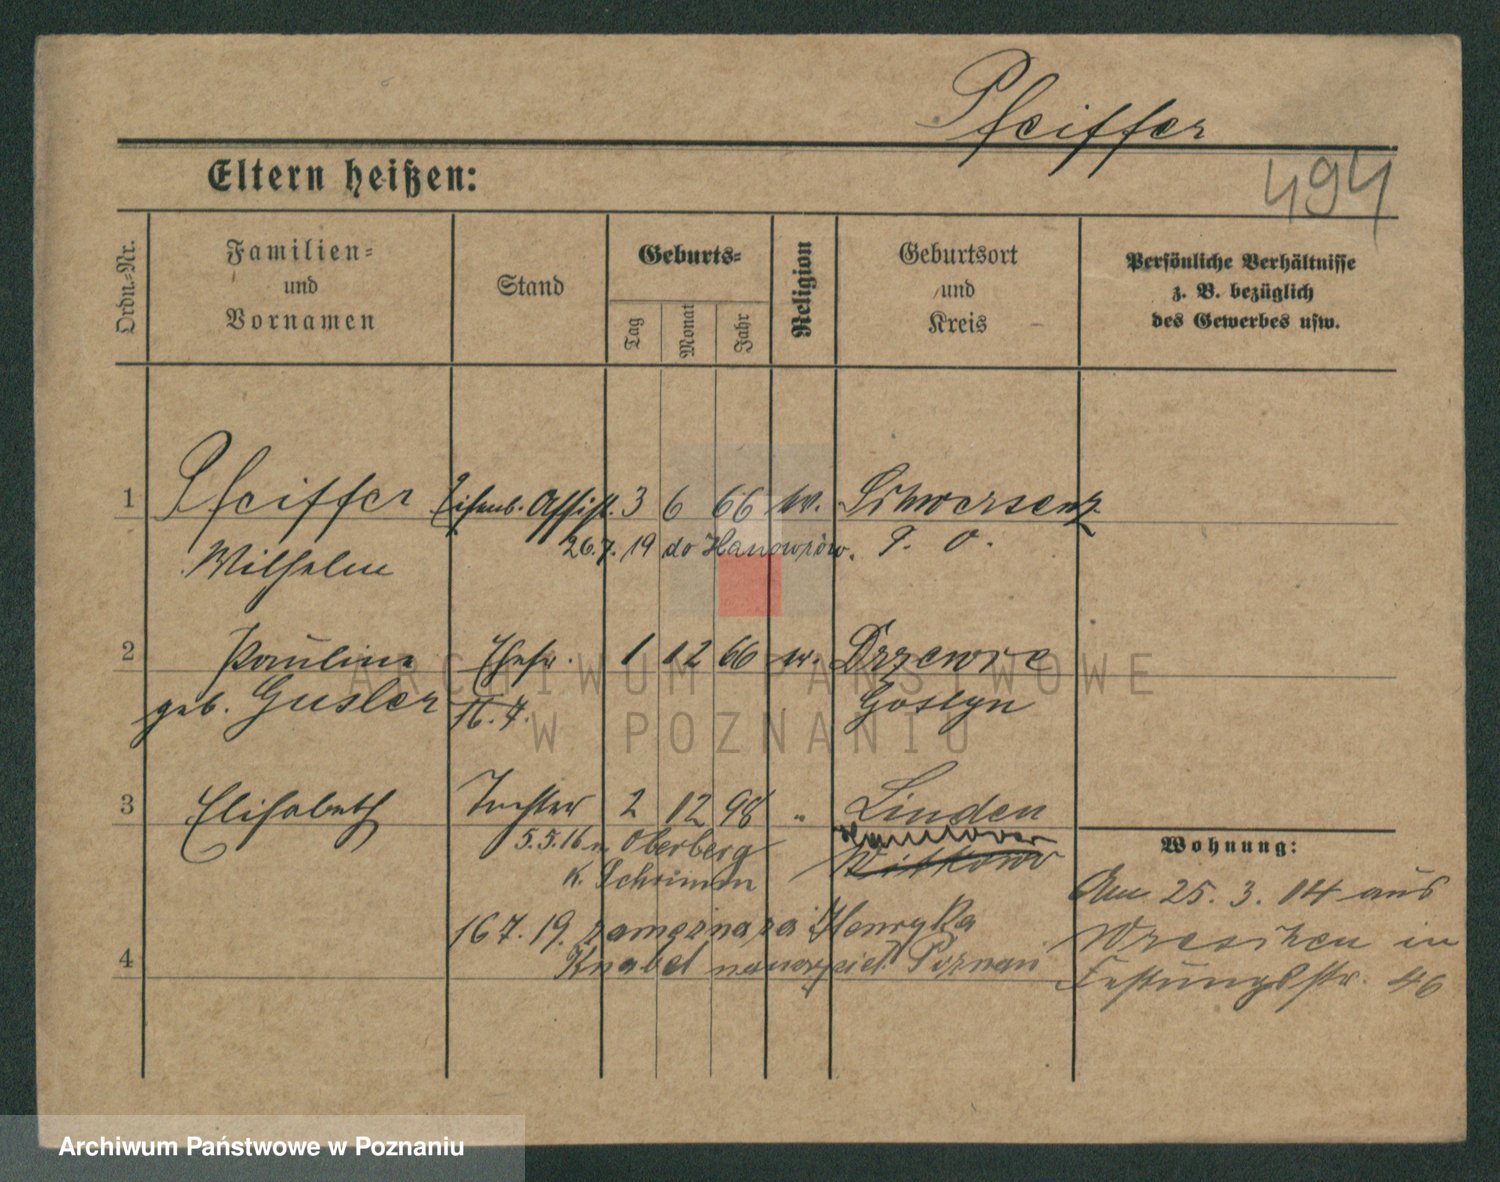 Pfeiffer
494
Eltern heißen:
Ordn.-Nr.
Familien-
und
Vornamen
Stand
Geburts-
Tag
Monat
Jahr
Religion
Geburtsort
und
Kreis
Persönliche Verhältnisse
z. B. bezüglich
des Gewerbes usw.
1 Pfeiffer Eisenb. Assist. 3 6 66 w. Schwersenz
Wilhelm 26.7.19 do Hanowrów. P. O.
2 Pauline Ehefr. 1 12 66 w. Drzewce
geb. Gusler 16.7. Gostyn
3 Elisabeth Tochter 2 12 98 " Linden
Hannover
5.5.16 n Oberberg Witkowo
K. Schrimm
16 7. 19. Henryka
4 Knabel Poznań
Wohnung:
Am 25. 3. 04 aus
Wreschen in
Festungsstr. 46
ARCHIWUM PAŃSTWOWE
W POZNANIU
Archiwum Państwowe w Poznaniu